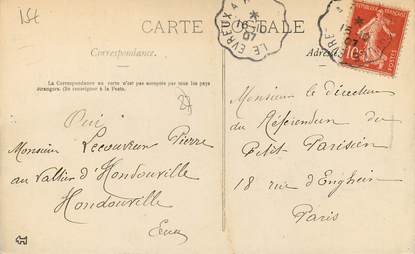 CARTE POSTALE
Correspondance
La Correspondance au verso n'est pas acceptée par tous les pays
étrangers. (Se renseigner à la Poste).
Oui
Monsieur Lecouvreur Pierre
au Vallier d'Hondouville
Hondouville
Eure
Monsieur le directeur
du Référendum du
Petit Parisien
18 rue d'Enghein
Paris
LE EVREUX A
16
07
10